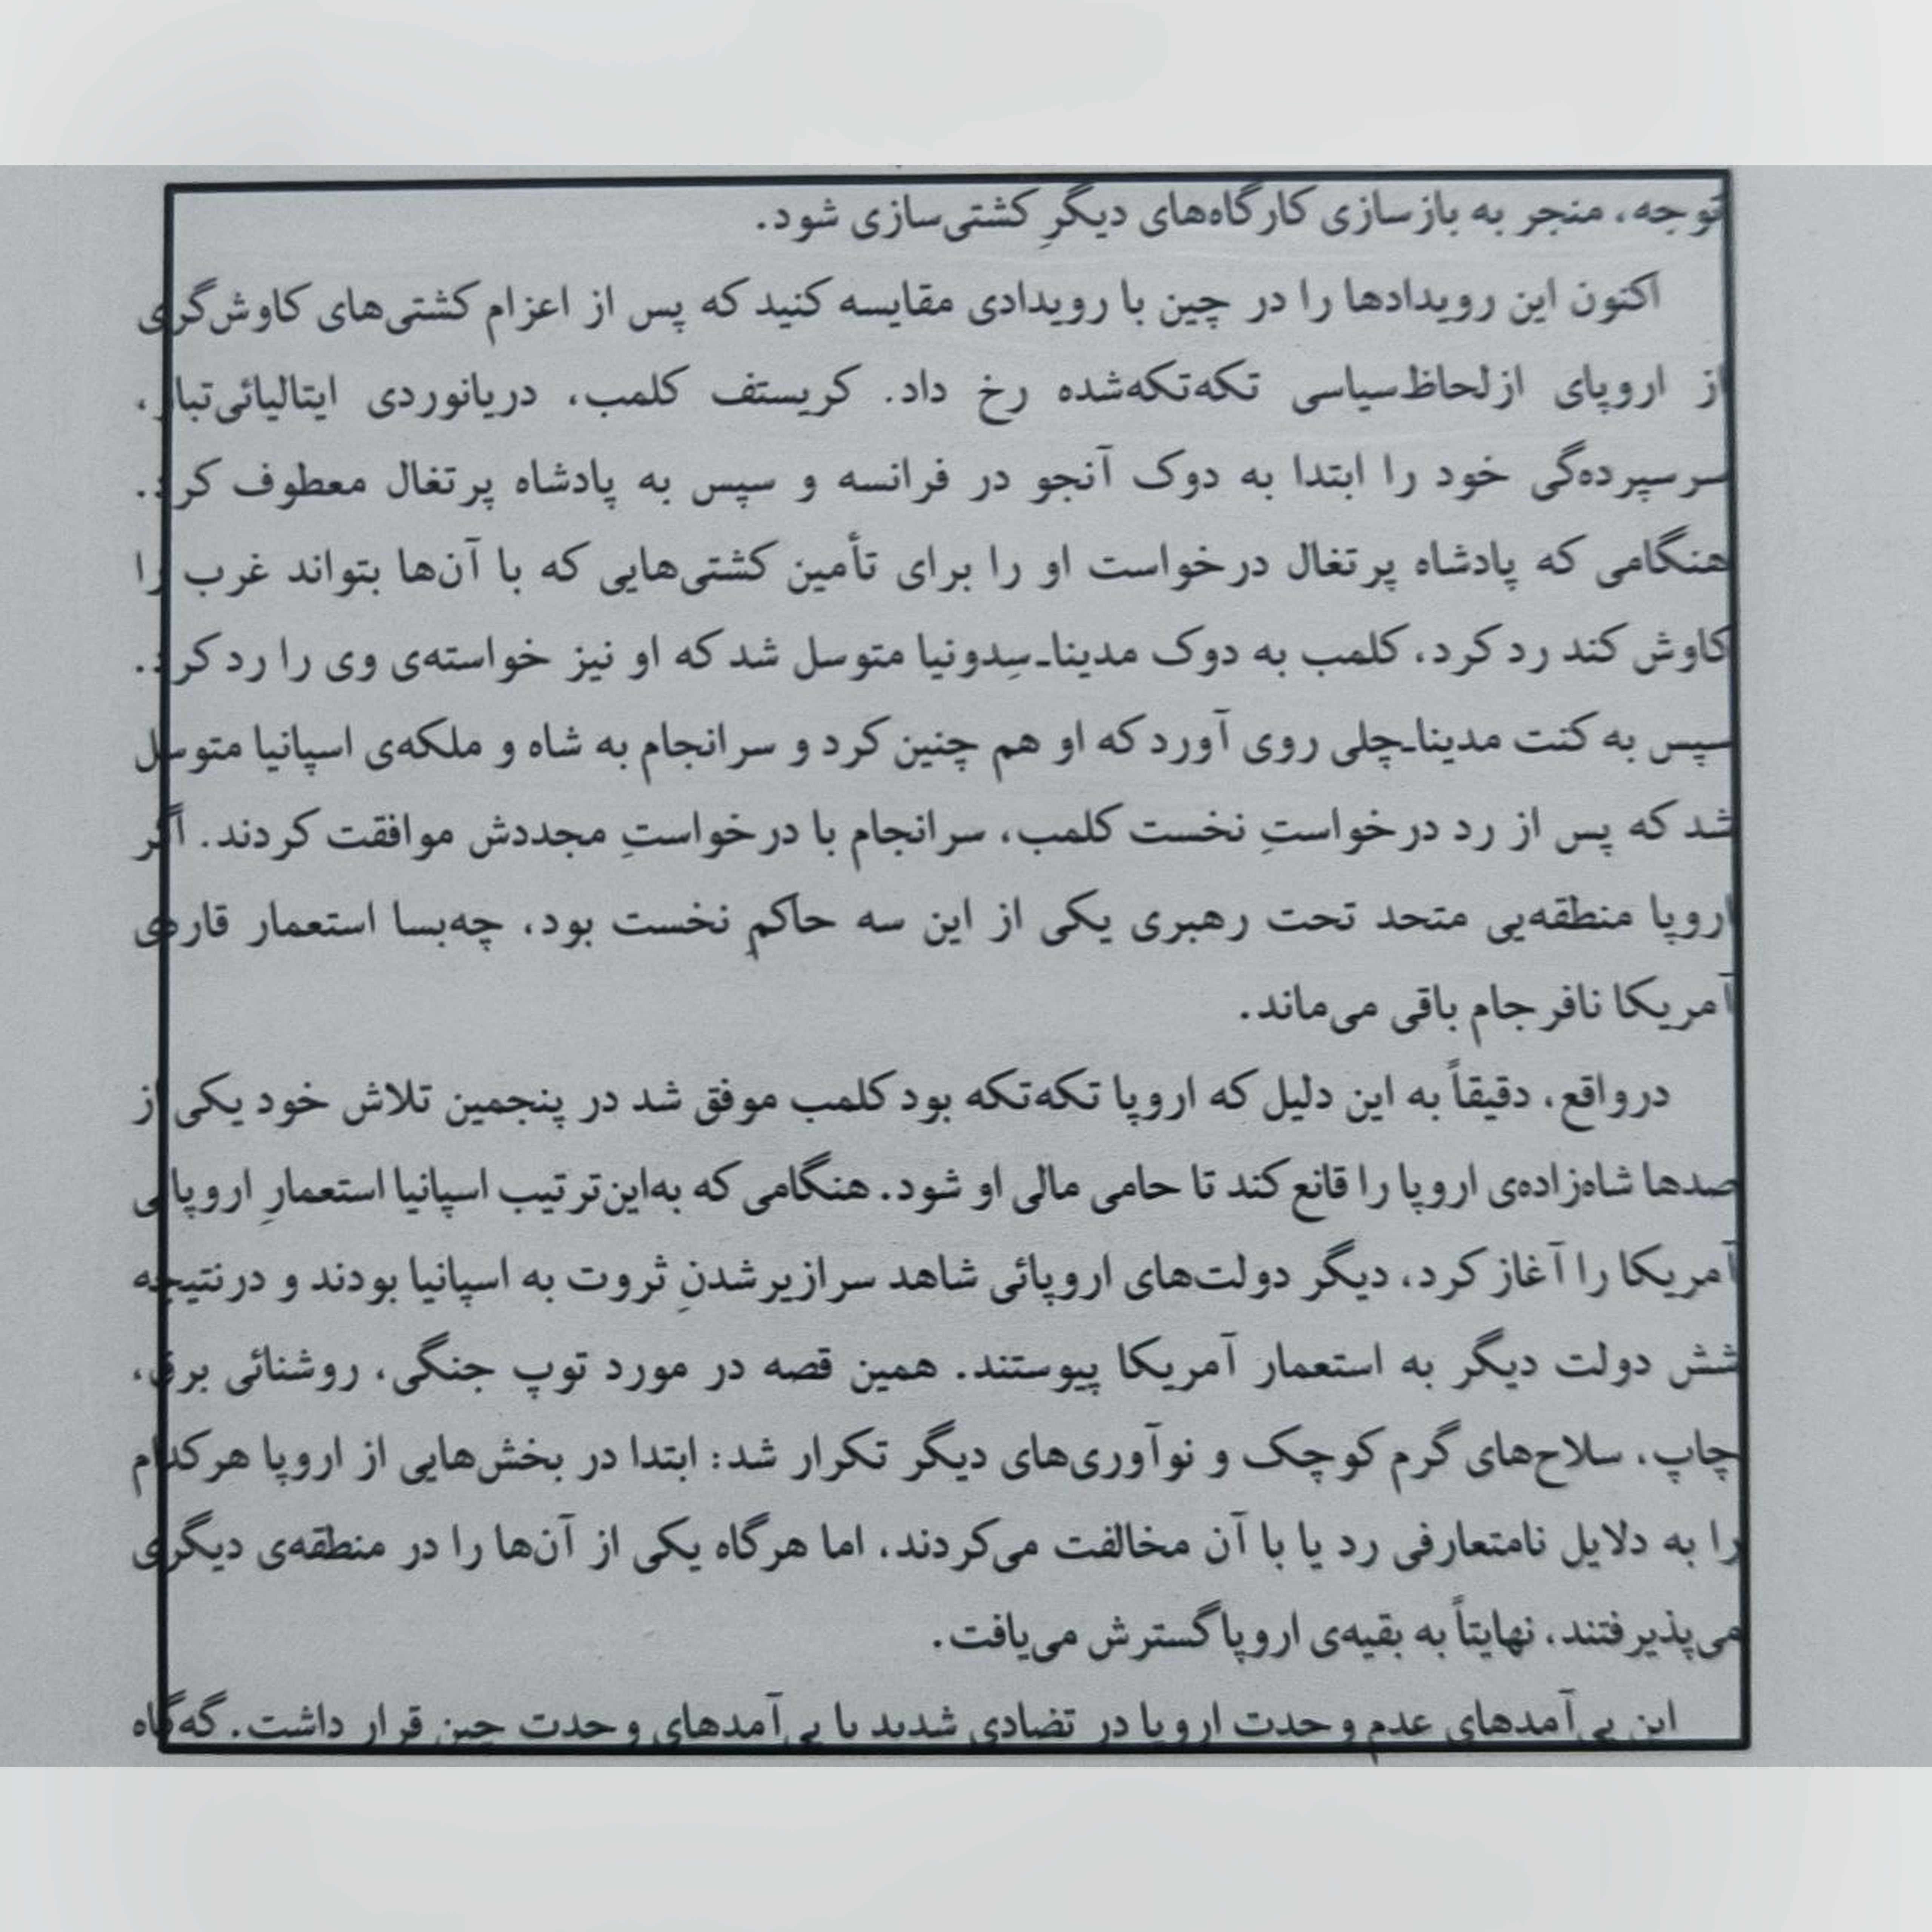 توجه، منجر به بازسازی کارگاه‌های دیگرِ کشتی‌سازی شود.
اکنون این رویدادها را در چین با رویدادی مقایسه کنید که پس از اعزام کشتی‌های کاوش‌گری
از اروپای ازلحاظ‌سیاسی تکه‌تکه‌شده رخ داد. کریستف کلمب، دریانوردی ایتالیائی‌تبار،
سرسپرده‌گی خود را ابتدا به دوک آنجو در فرانسه و سپس به پادشاه پرتغال معطوف کرد.
هنگامی که پادشاه پرتغال درخواست او را برای تأمین کشتی‌هایی که با آن‌ها بتواند غرب را
کاوش کند رد کرد، کلمب به دوک مدینا-سِدونیا متوسل شد که او نیز خواسته‌ی وی را رد کرد.
سپس به کنت مدینا-چلی روی آورد که او هم چنین کرد و سرانجام به شاه و ملکه‌ی اسپانیا متوسل
شد که پس از رد درخواستِ نخست کلمب، سرانجام با درخواستِ مجددش موافقت کردند. اگر
اروپا منطقه‌یی متحد تحت رهبری یکی از این سه حاکمِ نخست بود، چه‌بسا استعمار قاره‌ی
آمریکا نافرجام باقی می‌ماند.
درواقع، دقیقاً به این دلیل که اروپا تکه‌تکه بود کلمب موفق شد در پنجمین تلاش خود یکی از
صدها شاه‌زاده‌ی اروپا را قانع کند تا حامی مالی او شود. هنگامی که به‌این‌ترتیب اسپانیا استعمارِ اروپائی
آمریکا را آغاز کرد، دیگر دولت‌های اروپائی شاهد سرازیرشدنِ ثروت به اسپانیا بودند و درنتیجه
شش دولت دیگر به استعمار آمریکا پیوستند. همین قصه در مورد توپ جنگی، روشنائی برق،
چاپ، سلاح‌های گرم کوچک و نوآوری‌های دیگر تکرار شد: ابتدا در بخش‌هایی از اروپا هرکدام
را به دلایل نامتعارفی رد یا با آن مخالفت می‌کردند، اما هرگاه یکی از آن‌ها را در منطقه‌ی دیگری
می‌پذیرفتند، نهایتاً به بقیه‌ی اروپا گسترش می‌یافت.
این پی‌آمدهای عدم وحدت اروپا در تضادی شدید با پی‌آمدهای وحدت چین قرار داشت. گه‌گاه